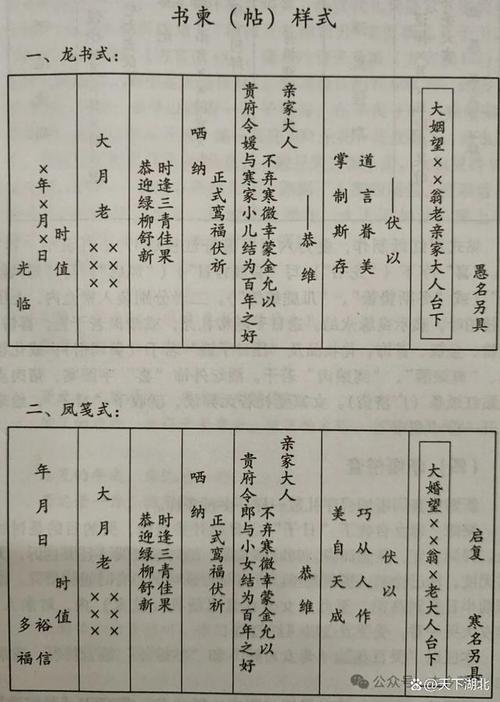 书柬（帖）样式
一、龙书式：
愚名另具
大姻望××翁老亲家大人台下
——伏以
道言眷美
掌制斯存
——恭维
亲家大人
不弃寒微幸蒙金允以
贵府令媛与寒家小儿结为百年之好
正式鸾福伏祈
哂纳
时逢三青佳果
恭迎绿柳舒新
大月老×××
×××
时值
×年×月×日
光临
二、凤笺式：
启复
寒名另具
大婚望××翁×老大人台下
伏以
巧从人作
美自天成
恭维
亲家大人
不弃寒微幸蒙金允以
贵府令郎与小女结为百年之好
正式鸾福伏祈
哂纳
时逢三青佳果
恭迎绿柳舒新
大月老×××
×××
时值
年月日
裕信
多福
公众号
天下湖北